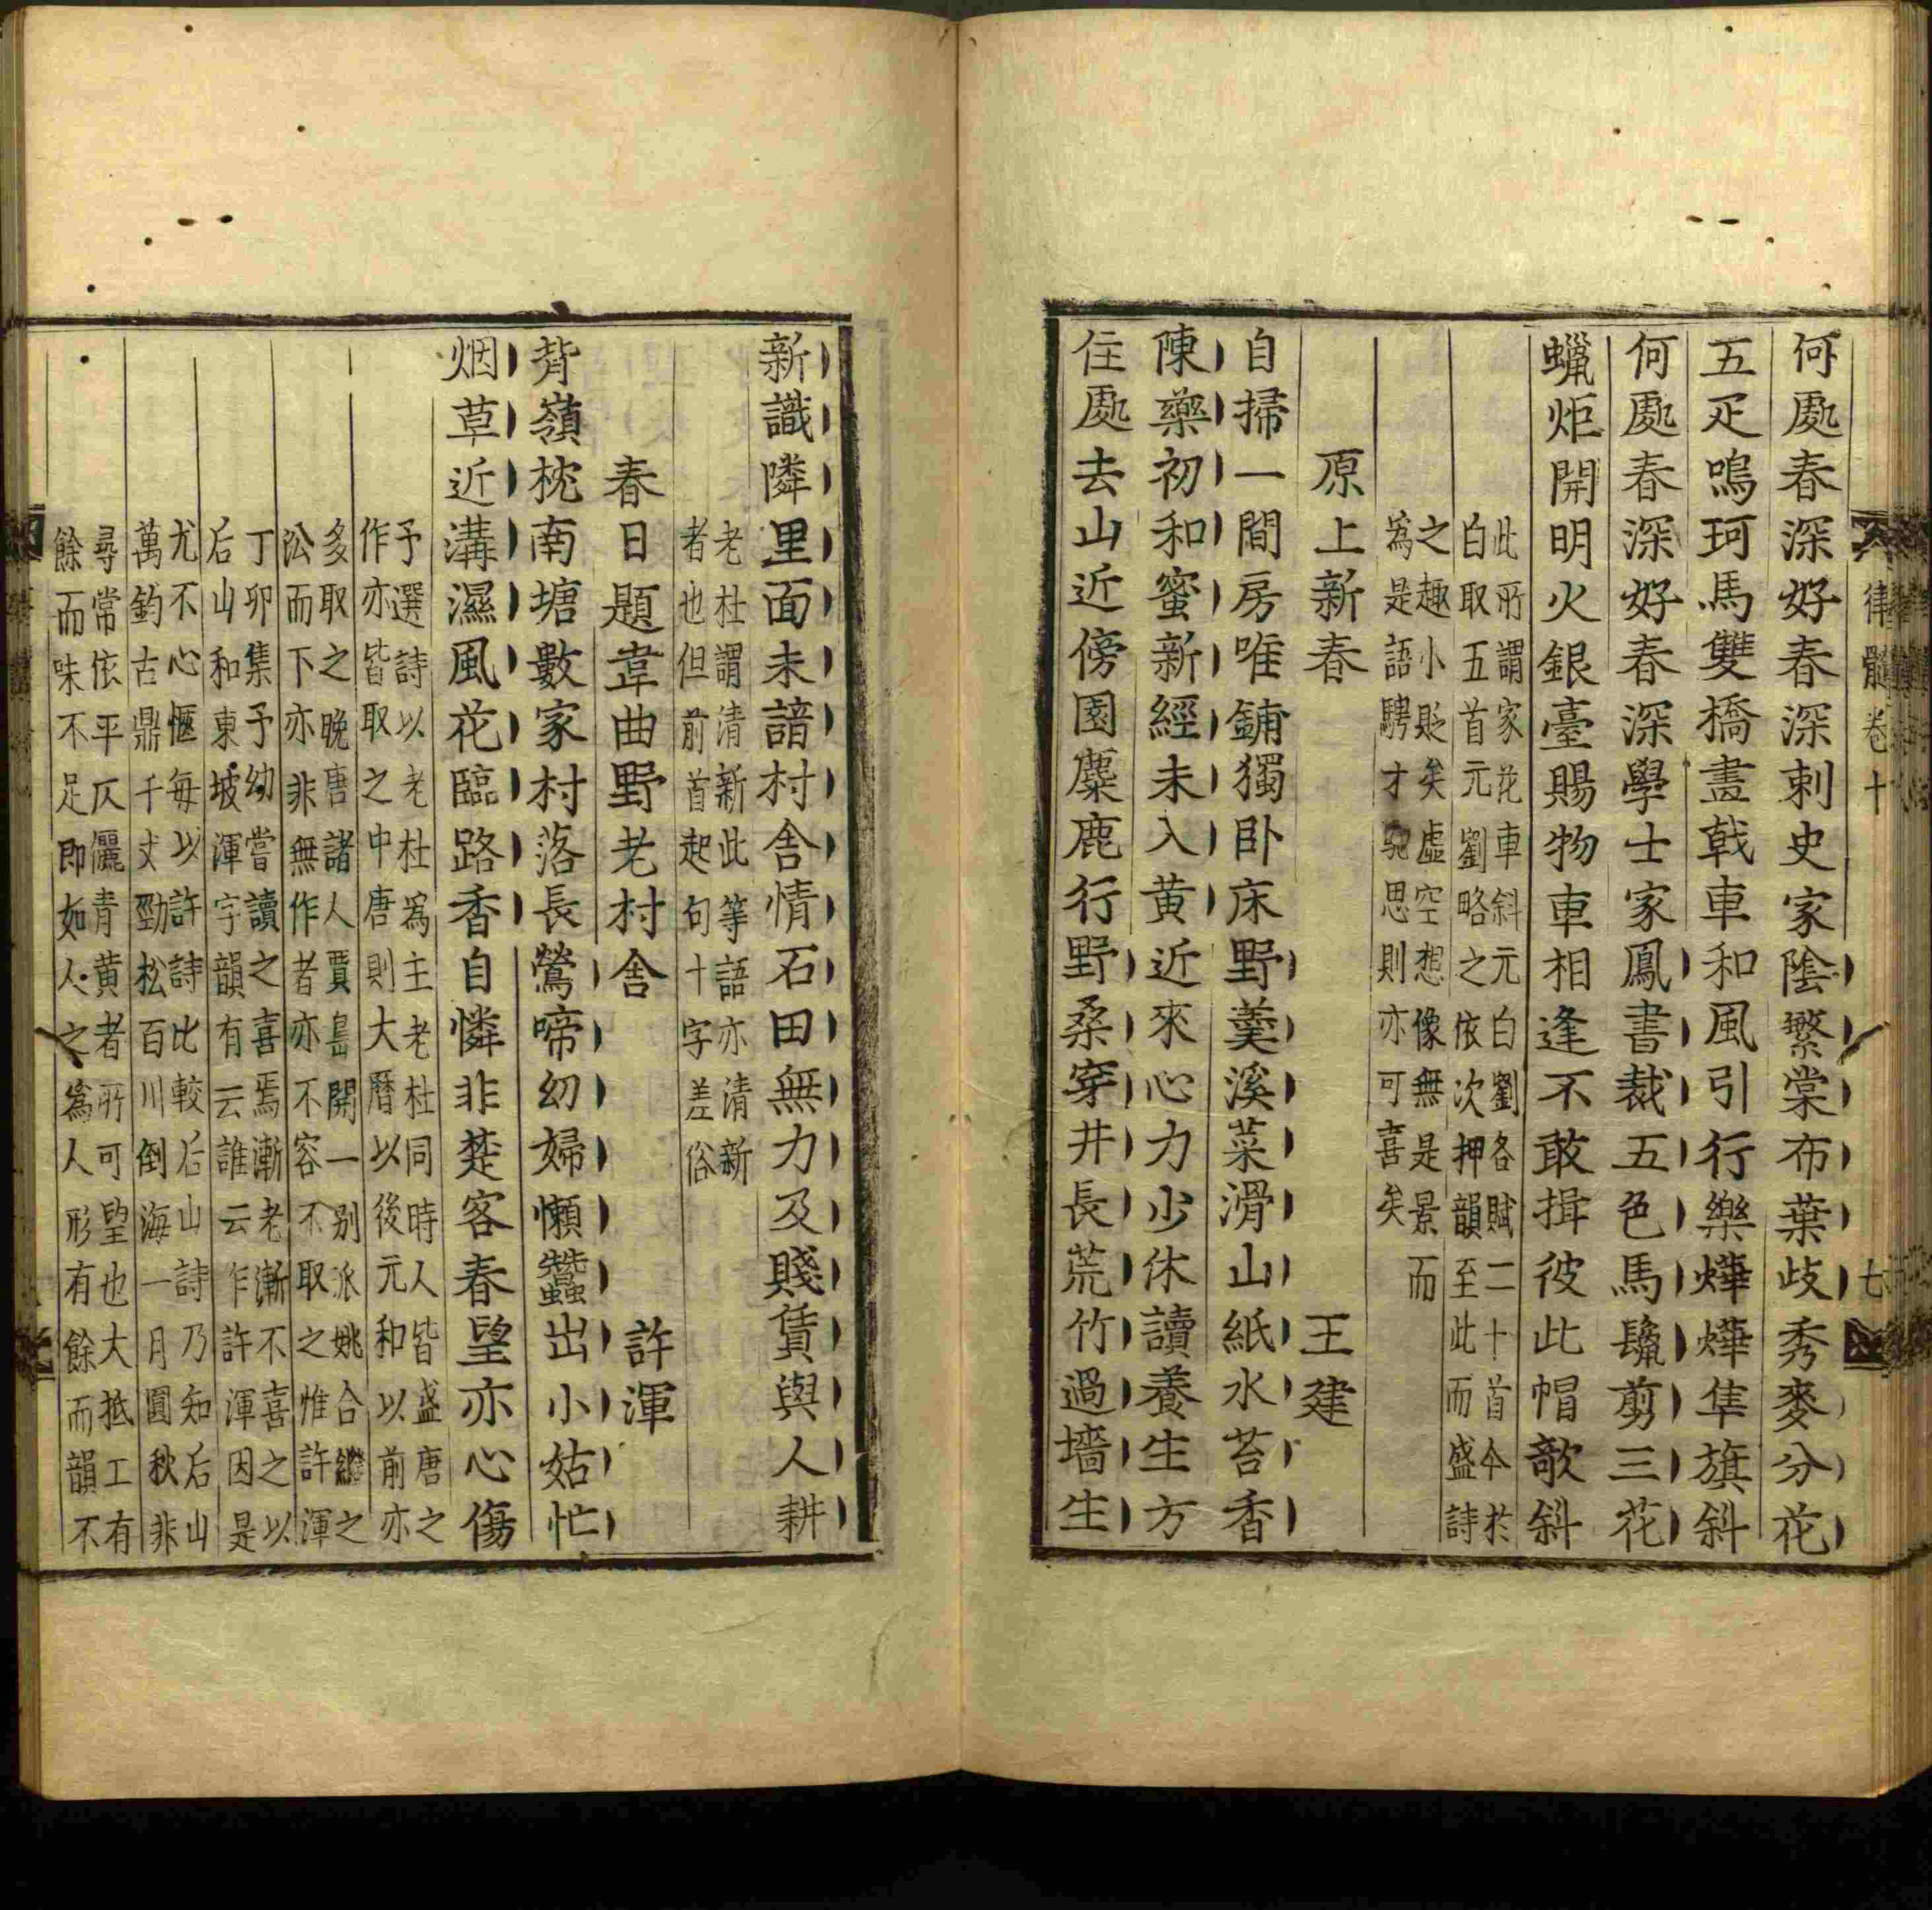 律髓卷十
七
何處春深好春深刺史家陰繁棠布葉歧秀麥分花
五疋鳴珂馬雙橋畫戟車和風引行樂燁燁隼旗斜
何處春深好春深學士家鳳書裁五色馬鬣剪三花
蠟炬開明火銀臺賜物車相逢不敢揖彼此帽欹斜
此所謂家花車斜元白劉各賦二十首今於
白取五首元劉略之依次押韻至此而盛詩
之趣小貶矣虛空想像無是景而
爲是語騁才騁思則亦可喜矣
原上新春
王建
自掃一間房唯鋪獨卧床野羹溪菜滑山紙水苔香
陳藥初和蜜新經未入黄近來心力少休讀養生方
住處去山近傍園麋鹿行野桑穿井長荒竹過墻生
新識隣里面未諳村舍情石田無力及賤賃與人耕
老杜謂清新此等語亦清新
者也但前首起句十字差俗
春日題韋曲野老村舍
許渾
背嶺枕南塘數家村落長鶯啼幼婦懶蠶出小姑忙
烟草近溝濕風花臨路香自憐非楚客春望亦心傷
予選詩以老杜爲主老杜同時人皆盛唐之
作亦皆取之中唐則大曆以後元和以前亦
多取之晚唐諸人賈島開一别派姚合繼之
㳂而下亦非無作者亦不容不取之惟許渾
丁卯集予幼嘗讀之喜焉漸老漸不喜之以
后山和東坡渾字韻有云誰云作許渾因是
尤不心愜每以許詩比較后山詩乃知后山
萬鈞古鼎千丈勁松百川倒海一月圓秋非
尋常依平仄儷青黄者所可望也大抵工有
餘而味不足即如人之爲人形有餘而韻不